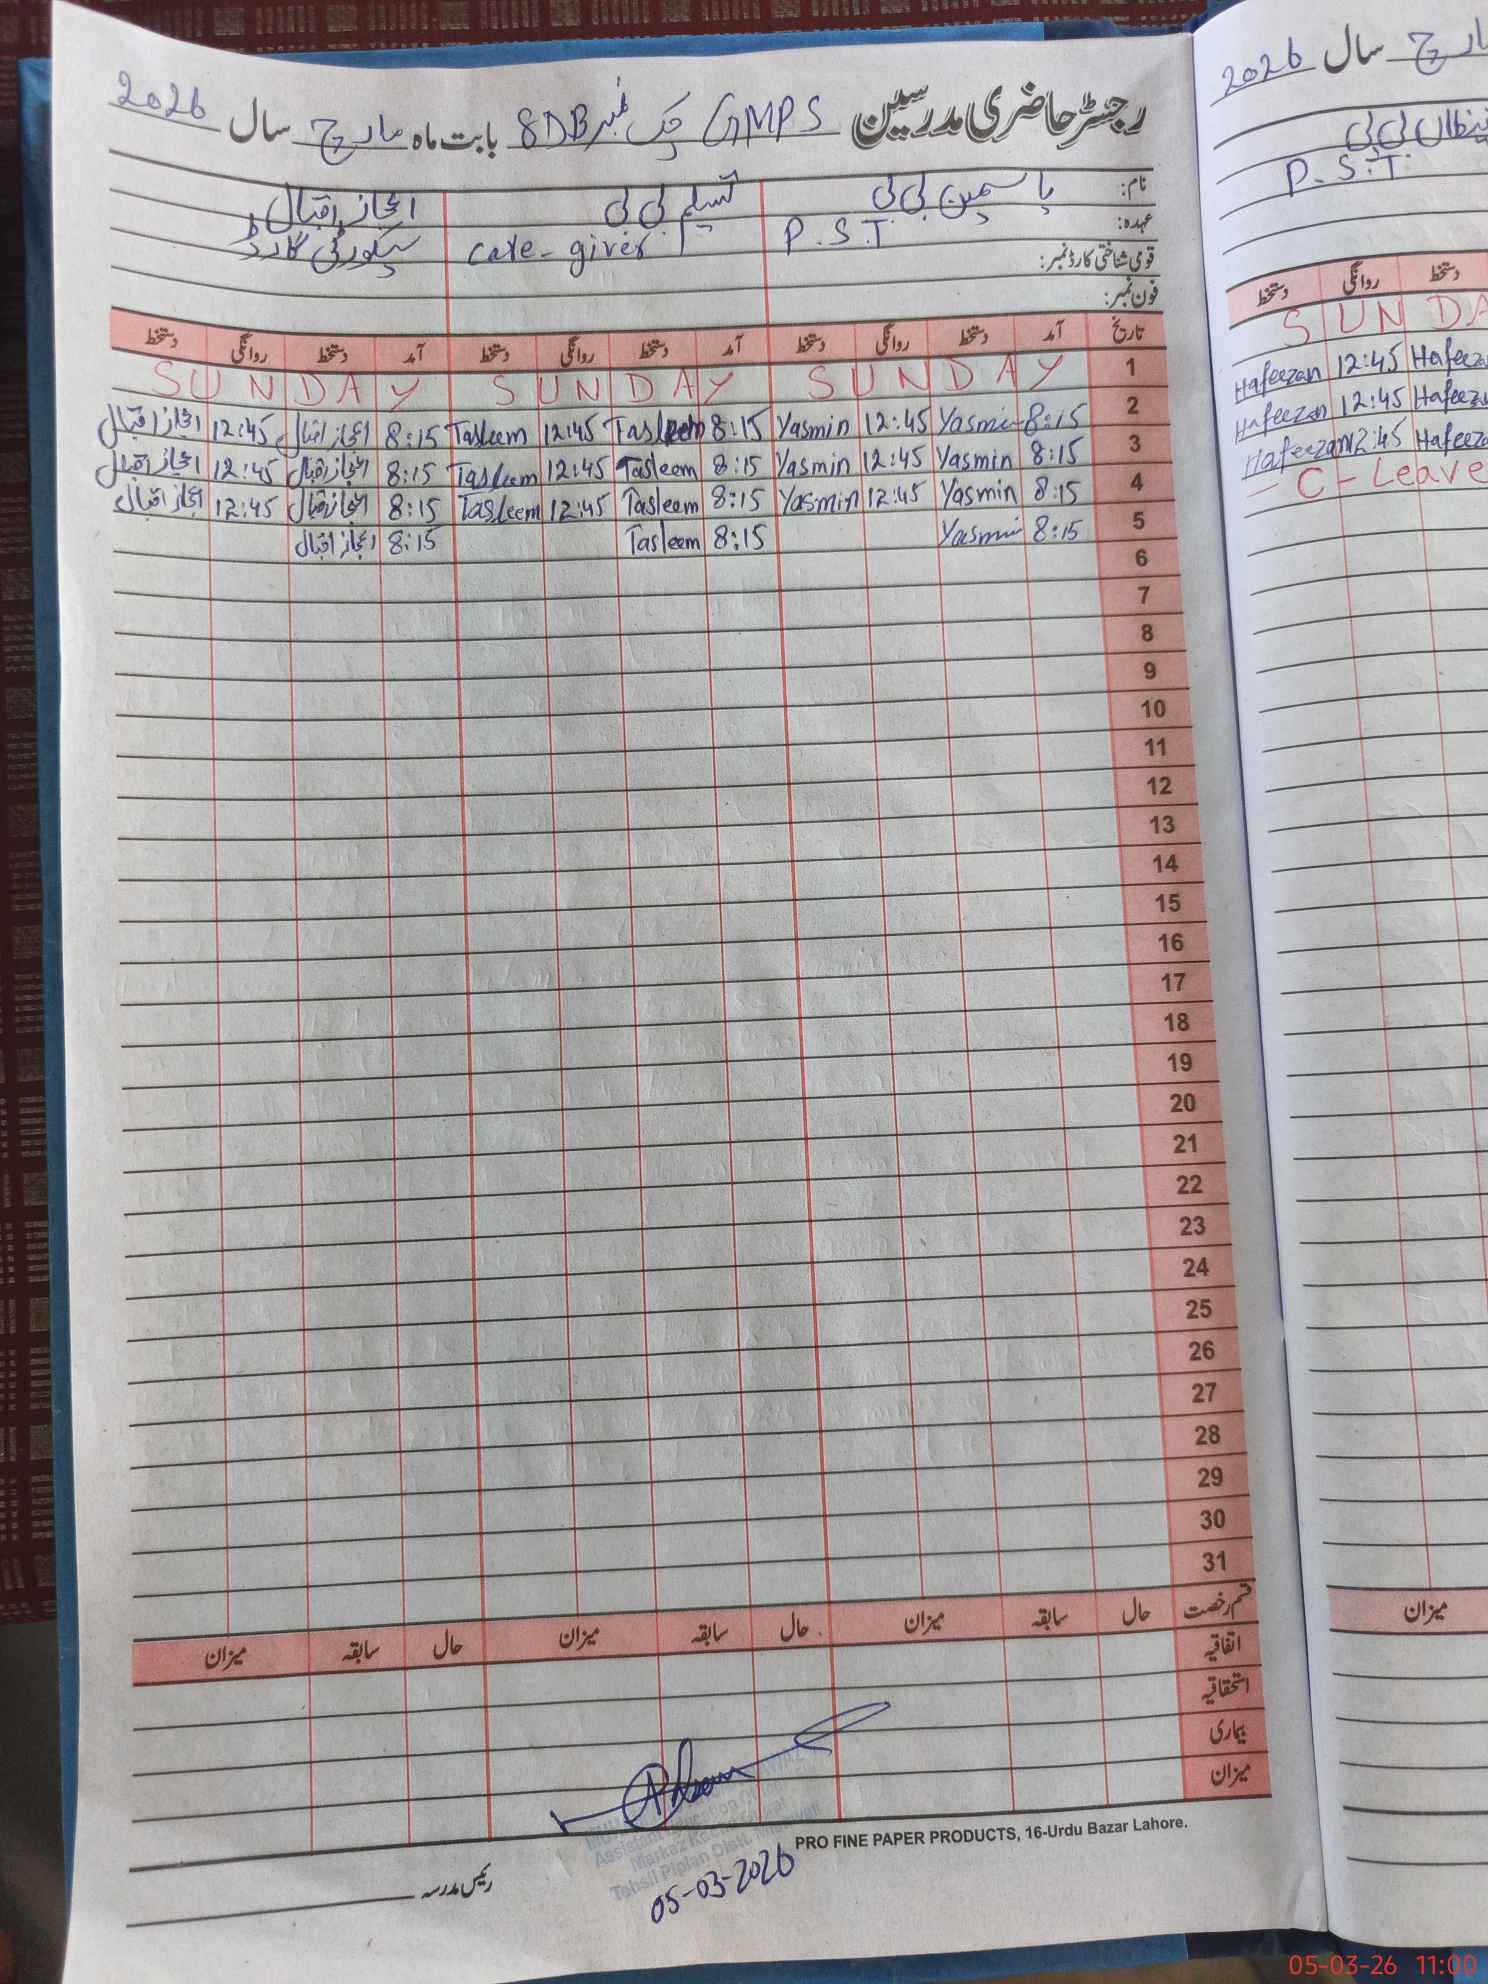 رجسٹر حاضری مدرسین GMPS چک نمبر 8DB بابت ماہ مارچ سال 2026
نام: یاسمین بی بی تسلیم بی بی اعجاز اقبال
عہدہ: P.S.T. care-giver سیکورٹی گارڈ
قومی شناختی کارڈ نمبر:
فون نمبر:
تاریخ آمد دستخط روانگی دستخط آمد دستخط روانگی دستخط آمد دستخط روانگی دستخط
1 SUNDAY SUNDAY SUNDAY
2 8:15 Yasmin 12:45 Yasmin 8:15 Tasleem 12:45 Tasleem 8:15 اعجاز اقبال 12:45 اعجاز اقبال
3 8:15 Yasmin 12:45 Yasmin 8:15 Tasleem 12:45 Tasleem 8:15 اعجاز اقبال 12:45 اعجاز اقبال
4 8:15 Yasmin 12:45 Yasmin 8:15 Tasleem 12:45 Tasleem 8:15 اعجاز اقبال 12:45 اعجاز اقبال
5 8:15 Yasmin 8:15 Tasleem 8:15 اعجاز اقبال
6
7
8
9
10
11
12
13
14
15
16
17
18
19
20
21
22
23
24
25
26
27
28
29
30
31
قسم رخصت حال سابقہ میزان حال سابقہ میزان حال سابقہ میزان
اتفاقیہ
استحقاقیہ
بیماری
میزان
Assistant Education
Markaz
Tehsil Piplan Distt.
05-03-2026
PRO FINE PAPER PRODUCTS, 16-Urdu Bazar Lahore.
رئیس مدرسہ
مارچ سال 2026
بی بی
P.S.T.
دستخط روانگی دستخط
SUNDA
Hafeezan 12:45 Hafeeza
Hafeezan 12:45 Hafeeza
Hafeezan 12:45 Hafeeza
- C - Leave
میزان
05-03-26 11:00